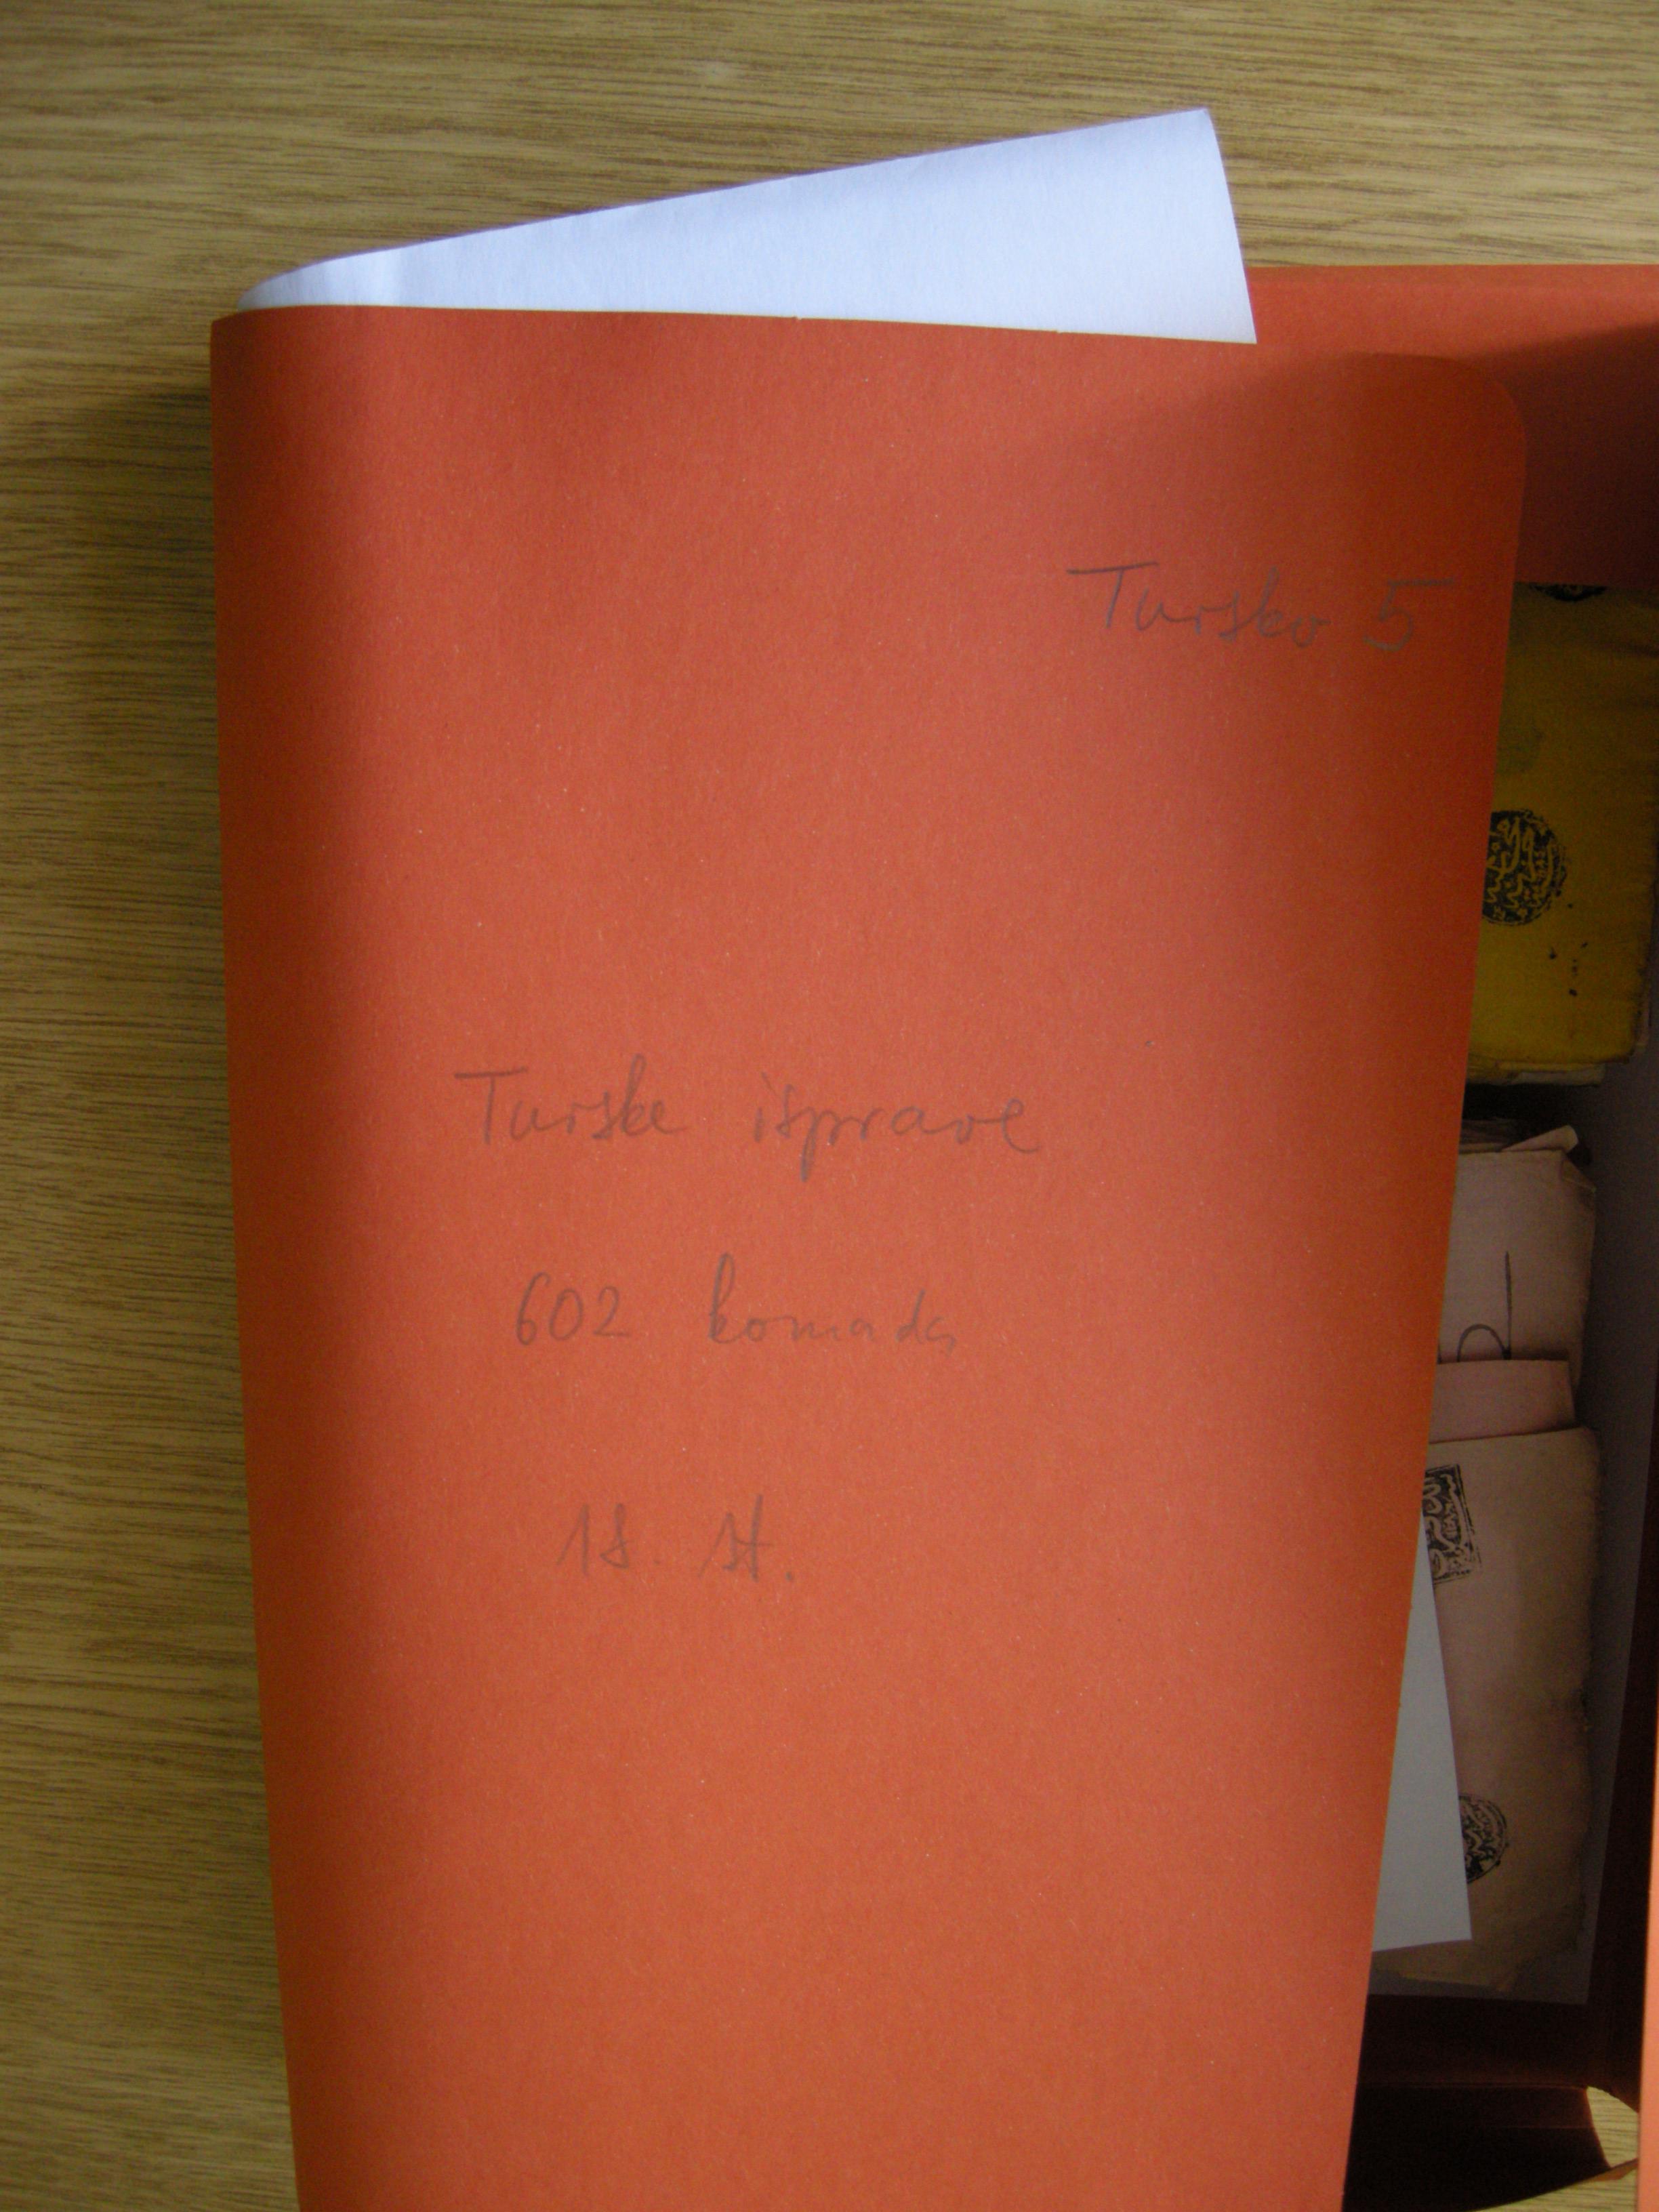 Tursko 5
Turske isprave
602 komada
18. st.